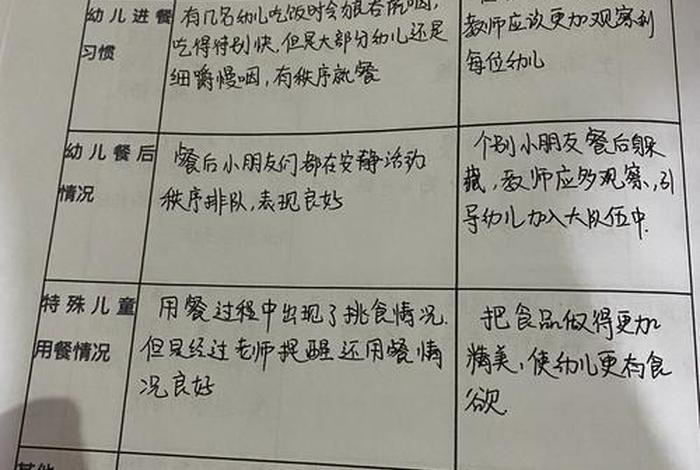 幼儿进餐
习惯
有几名幼儿吃饭时会狼吞虎咽,
吃得特别快,但是大部分幼儿还是
细嚼慢咽,有秩序就餐
教师应该更加观察到
每位幼儿
幼儿餐后
情况
餐后小朋友们都在安静活动
秩序排队,表现良好
个别小朋友餐后躲
藏,教师应多观察,引
导幼儿加入大队伍中.
特殊儿童
用餐情况
用餐过程中出现了挑食情况.
但是经过老师提醒还用餐情
况良好
把食品做得更加
精美,使幼儿更有食
欲.
其他